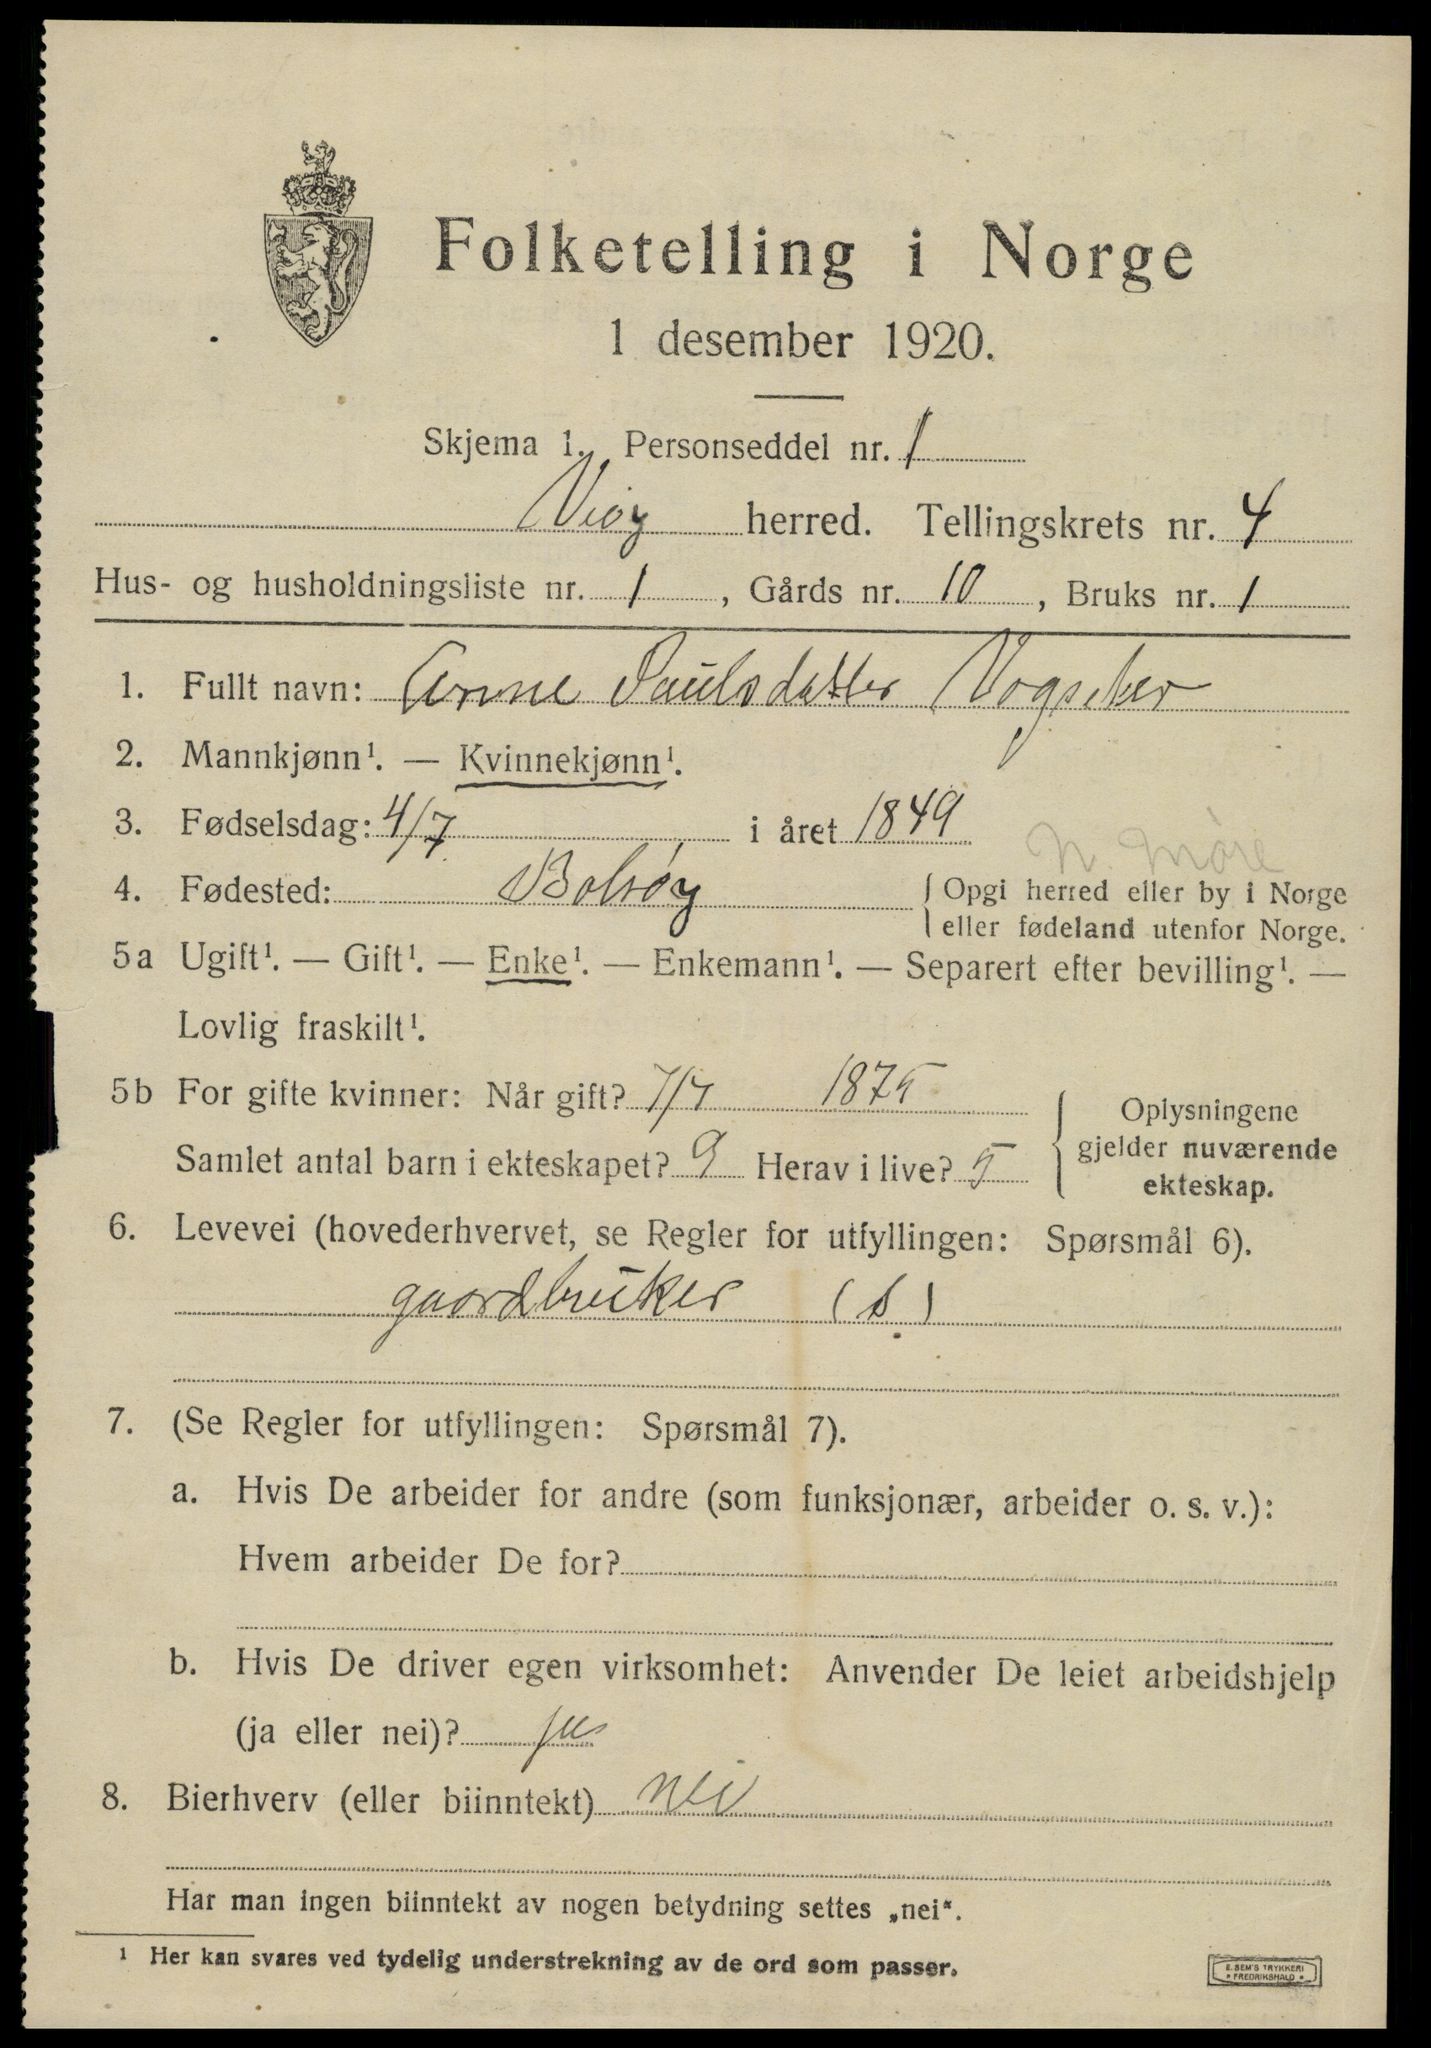 Folketelling i Norge
1 desember 1920.
Skjema 1. Personseddel nr. 1
Veöy herred. Tellingskrets nr. 4
Hus- og husholdningsliste nr. 1, Gårds nr. 10, Bruks nr. 1
1. Fullt navn: Anne Paulsdatter
2. Mannkjønn¹. — Kvinnekjønn¹.
3. Fødselsdag: 4/7 i året 1849
N. Møre
4. Fødested: Bolsöy { Opgi herred eller by i Norge
eller fødeland utenfor Norge.
5a Ugift¹. — Gift¹. — Enke¹. — Enkemann¹. — Separert efter bevilling¹. —
Lovlig fraskilt¹.
5b For gifte kvinner: Når gift? 7/7 1875 { Oplysningene
gjelder nuværende
ekteskap.
Samlet antal barn i ekteskapet? 9 Herav i live? 5
6. Levevei (hovederhvervet, se Regler for utfyllingen: Spørsmål 6).
gaardbruker (s)
7. (Se Regler for utfyllingen: Spørsmål 7).
a. Hvis De arbeider for andre (som funksjonær, arbeider o. s. v.):
Hvem arbeider De for?
b. Hvis De driver egen virksomhet: Anvender De leiet arbeidshjelp
(ja eller nei)? ja
8. Bierhverv (eller biinntekt) nei
Har man ingen biinntekt av nogen betydning settes „nei“.
¹ Her kan svares ved tydelig understrekning av de ord som passer.
E. SEM'S TRYKKERI
* FREDRIKSHALD *